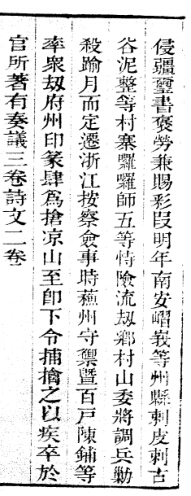 侵疆璽書褒勞兼賜彩叚明年南安嶍峩等州縣剌皮剌古
谷泥整等村寨囉囉師五等恃險流刼鄉村山委將調兵勦
殺踰月而定遷浙江按察僉事時蘓州守禦暨百戶陳鋪等
率衆刼府州印篆肆爲搶凉山至卽下令捕擒之以疾卒於
官所著有奏議三卷詩文二卷